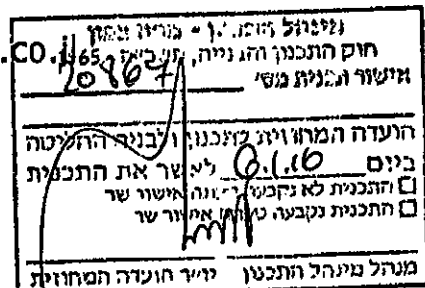 מינהל
חוק התכנון והבנייה,
.co.il
אישור תכנית מס'
20867
הועדה המחוזית לתכנון ולבניה החליטה
ביום 6.1.16 לאשר את התכנית
התכנית לא נקבעה אישור שר
התכנית נקבעה אישור שר
מנהל מינהל התכנון יו"ר הועדה המחוזית